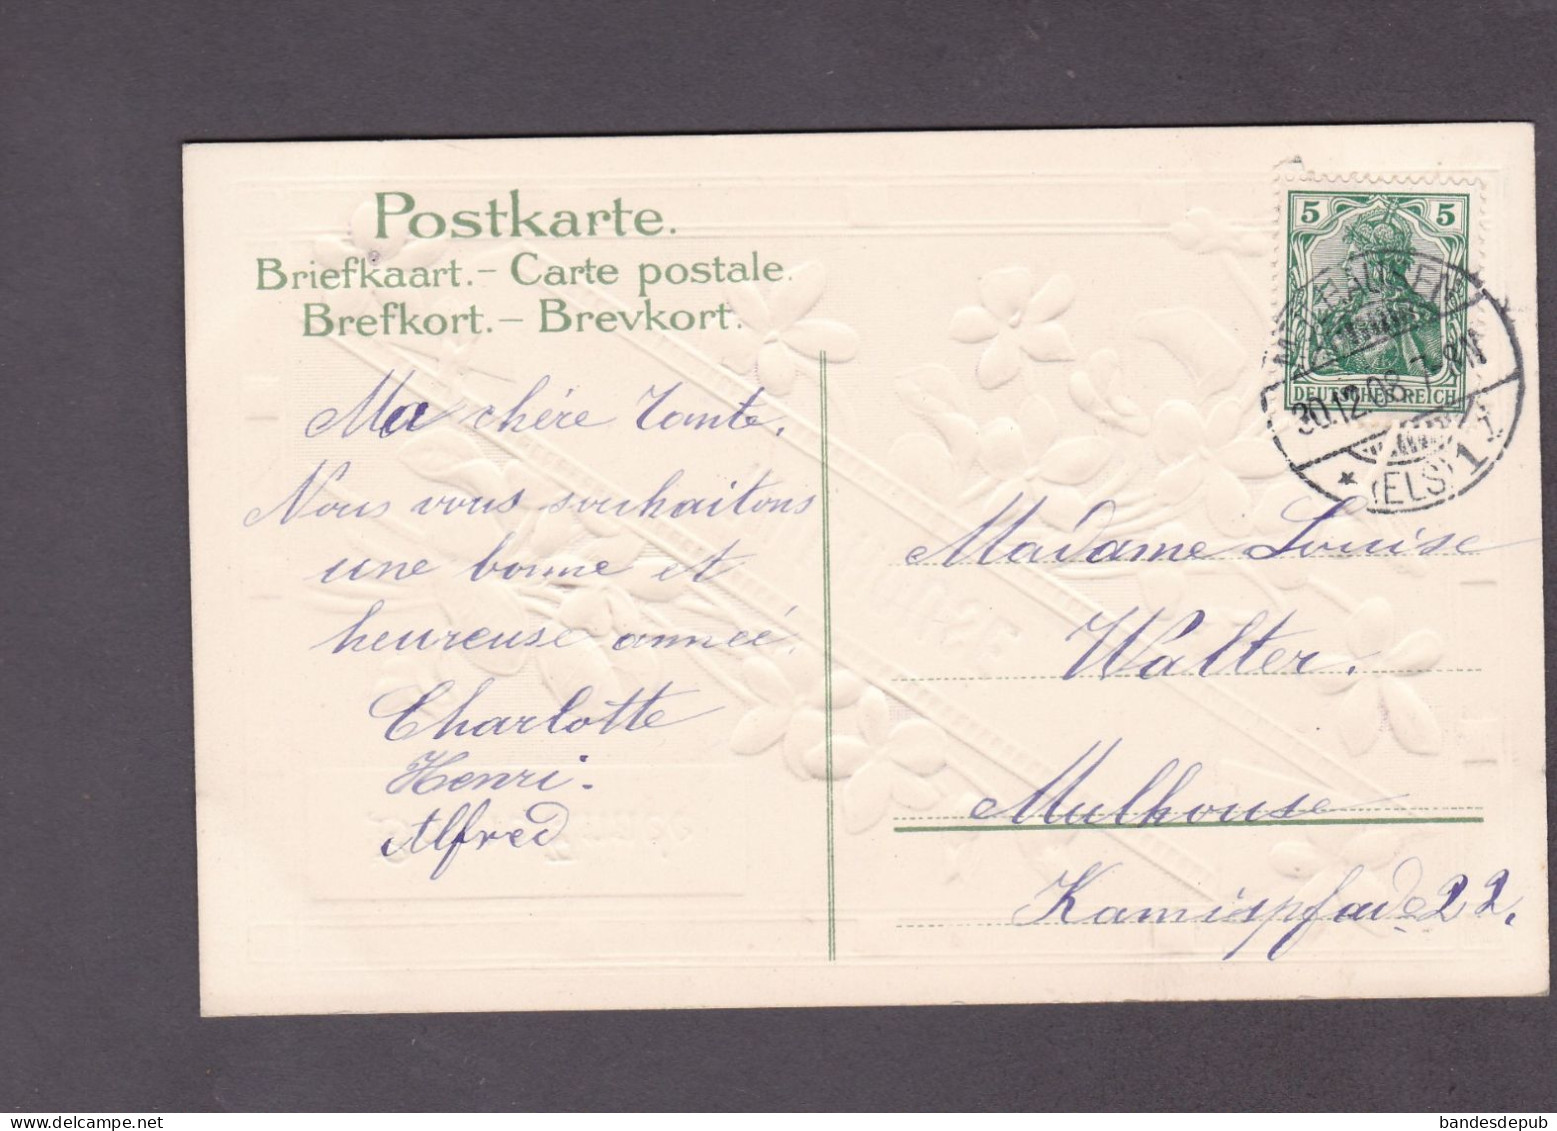 Postkarte.
Briefkaart. – Carte postale.
Brefkort. – Brevkort.
Ma chère Tante.
Nous vous souhaitons
une bonne et
heureuse anneé.
Charlotte
Henri.
Alfred
5 5
DEUTSCHES REICH
30.12.08. 7-8N
* (ELS) 1
Madame Louise
Walter.
Mulhouse
22.
bandesdepub